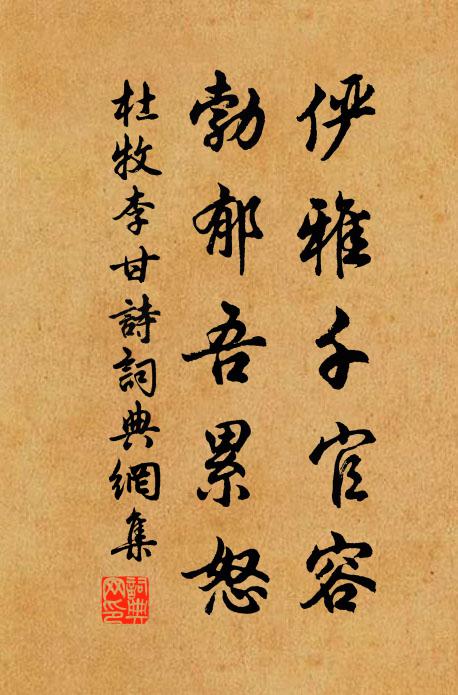 俨雅千官容
勃郁吾累怒
杜牧李甘詩詞典網集
詞典网印